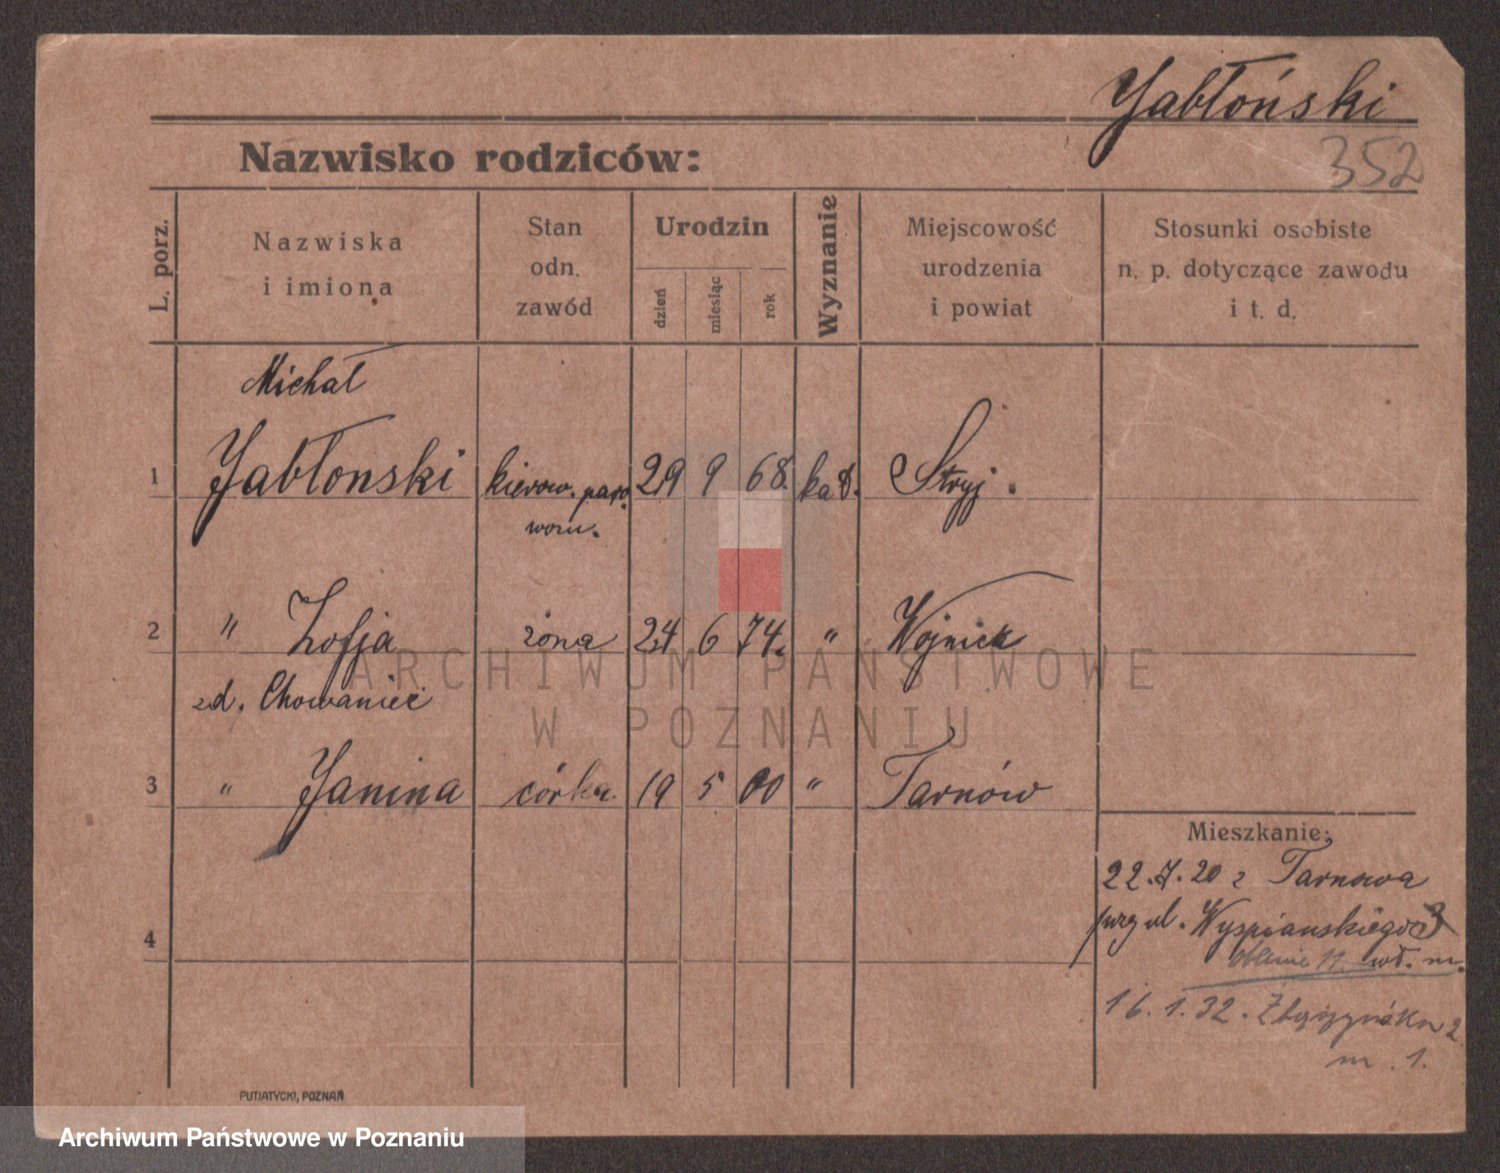 Jabłoński
352
Nazwisko rodziców:
L. porz.
Nazwiska
i imiona
Stan
odn.
zawód
Urodzin
dzień
miesiąc
rok
Wyznanie
Miejscowość
urodzenia
i powiat
Stosunki osobiste
n. p. dotyczące zawodu
i t. d.
Michał
1 Jabłonski kierow. paro 29 9 68. kat. Stryj.
wozu.
2 " Zofja żona 24 6 74. " Wojnicz
zd. Chowaniec
3 " Janina córka 19 5 00 " Tarnów
4
Mieszkanie:
22.7.20 z Tarnowa
przy ul. Wyspianskiego 3
obecnie 11 wł. m.
16.1.32. Zbąszyńska 2
m. 1.
PUTIATYCKI, POZNAŃ
ARCHIWUM PAŃSTWOWE
W POZNANIU
Archiwum Państwowe w Poznaniu